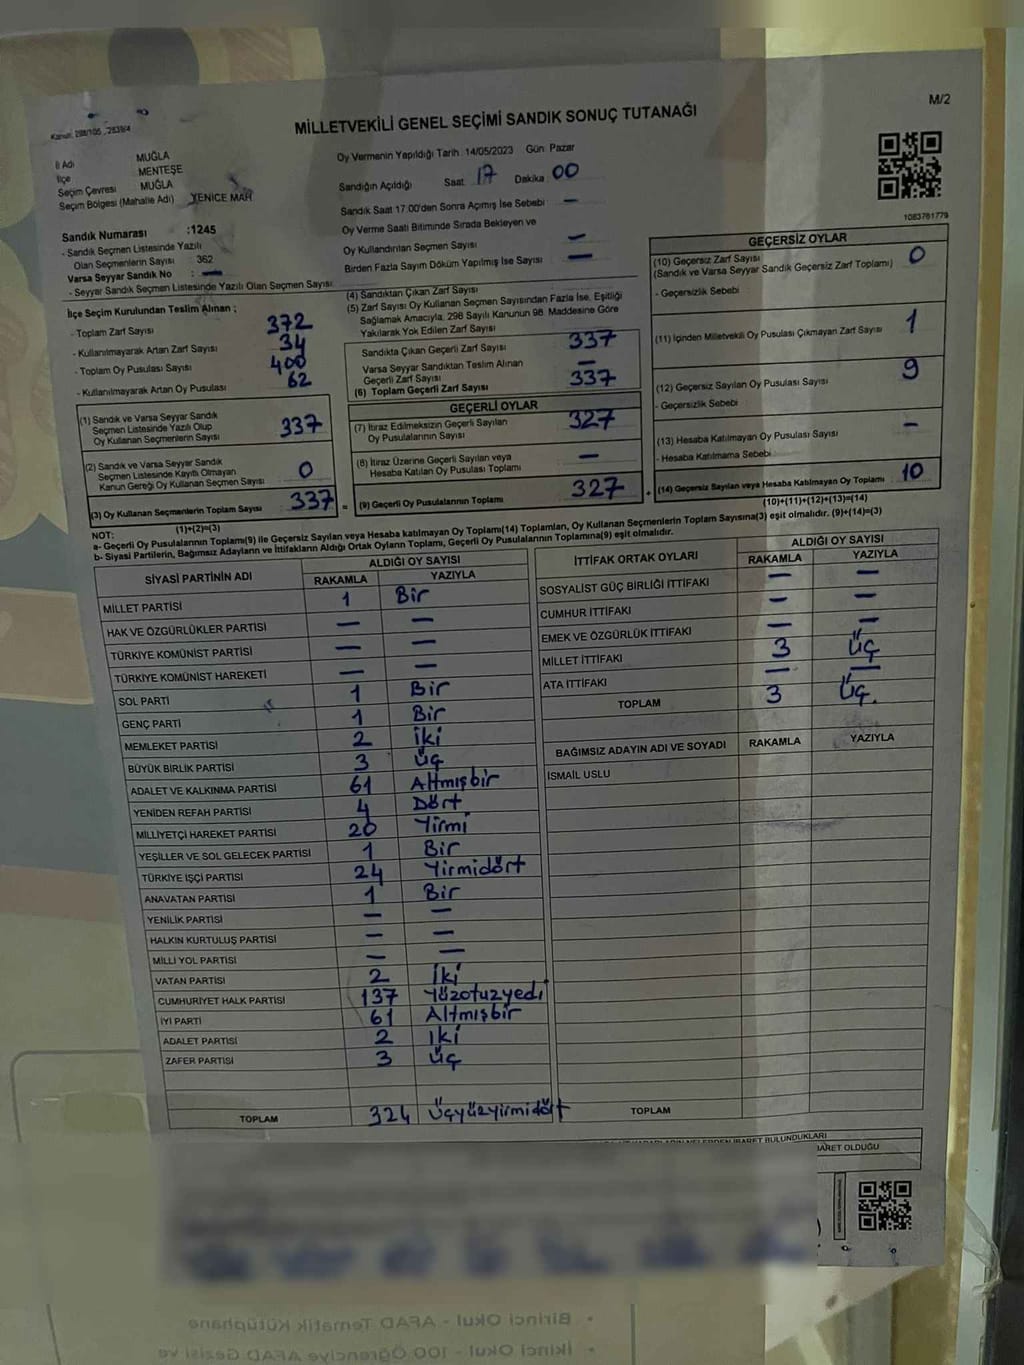 M/2
Kanun: 298/105 , 2839/4
MİLLETVEKİLİ GENEL SEÇİMİ SANDIK SONUÇ TUTANAĞI
İl Adı MUĞLA
İlçe MENTEŞE
Seçim Çevresi MUĞLA
Seçim Bölgesi (Mahalle Adı) YENİCE MAH
Oy Vermenin Yapıldığı Tarih: 14/05/2023 Gün: Pazar
Sandığın Açıldığı Saat 17 Dakika 00
Sandık Saat 17.00'den Sonra Açımış İse Sebebi —
Oy Verme Saati Bitiminde Sırada Bekleyen ve
Oy Kullandırılan Seçmen Sayısı —
Birden Fazla Sayım Döküm Yapılmış İse Sayısı —
1083761779
Sandık Numarası :1245
- Sandık Seçmen Listesinde Yazılı
Olan Seçmenlerin Sayısı : 362
Varsa Seyyar Sandık No : —
- Seyyar Sandık Seçmen Listesinde Yazılı Olan Seçmen Sayısı:
İlçe Seçim Kurulundan Teslim Alınan ;
- Toplam Zarf Sayısı 372
- Kullanılmayarak Artan Zarf Sayısı 34
- Toplam Oy Pusulası Sayısı 400
- Kullanılmayarak Artan Oy Pusulası 62
(1) Sandık ve Varsa Seyyar Sandık
Seçmen Listesinde Yazılı Olup
Oy Kullanan Seçmenlerin Sayısı 337
(2) Sandık ve Varsa Seyyar Sandık
Seçmen Listesinde Kayıtlı Olmayan
Kanun Gereği Oy Kullanan Seçmen Sayısı : 0
(3) Oy Kullanan Seçmenlerin Toplam Sayısı 337 =
(1)+(2)=(3)
(4) Sandıktan Çıkan Zarf Sayısı
(5) Zarf Sayısı Oy Kullanan Seçmen Sayısından Fazla İse, Eşitliği
Sağlamak Amacıyla, 298 Sayılı Kanunun 98. Maddesine Göre
Yakılarak Yok Edilen Zarf Sayısı
Sandıkta Çıkan Geçerli Zarf Sayısı 337
Varsa Seyyar Sandıktan Teslim Alınan
Geçerli Zarf Sayısı —
(6) Toplam Geçerli Zarf Sayısı 337
GEÇERLİ OYLAR
(7) İtiraz Edilmeksizin Geçerli Sayılan
Oy Pusulalarının Sayısı 327
(8) İtiraz Üzerine Geçerli Sayılan veya
Hesaba Katılan Oy Pusulası Toplamı —
(9) Geçerli Oy Pusulalarının Toplamı 327 +
GEÇERSİZ OYLAR
(10) Geçersiz Zarf Sayısı
(Sandık ve Varsa Seyyar Sandık Geçersiz Zarf Toplamı) 0
- Geçersizlik Sebebi :
(11) İçinden Milletvekili Oy Pusulası Çıkmayan Zarf Sayısı 1
(12) Geçersiz Sayılan Oy Pusulası Sayısı 9
- Geçersizlik Sebebi :
(13) Hesaba Katılmayan Oy Pusulası Sayısı —
- Hesaba Katılmama Sebebi :
(14) Geçersiz Sayılan veya Hesaba Katılmayan Oy Toplamı 10
(10)+(11)+(12)+(13)=(14)
NOT:
a- Geçerli Oy Pusulalarının Toplamı(9) ile Geçersiz Sayılan veya Hesaba katılmayan Oy Toplamı(14) Toplamları, Oy Kullanan Seçmenlerin Toplam Sayısına(3) eşit olmalıdır. (9)+(14)=(3)
b- Siyasi Partilerin, Bağımsız Adayların ve İttifakların Aldığı Ortak Oyların Toplamı, Geçerli Oy Pusulalarının Toplamına(9) eşit olmalıdır.
SİYASİ PARTİNİN ADI ALDIĞI OY SAYISI
RAKAMLA YAZIYLA
MİLLET PARTİSİ 1 Bir
HAK VE ÖZGÜRLÜKLER PARTİSİ — —
TÜRKİYE KOMÜNİST PARTİSİ — —
TÜRKİYE KOMÜNİST HAREKETİ — —
SOL PARTİ 1 Bir
GENÇ PARTİ 1 Bir
MEMLEKET PARTİSİ 2 İki
BÜYÜK BİRLİK PARTİSİ 3 Üç
ADALET VE KALKINMA PARTİSİ 61 Altmışbir
YENİDEN REFAH PARTİSİ 4 Dört
MİLLİYETÇİ HAREKET PARTİSİ 20 Yirmi
YEŞİLLER VE SOL GELECEK PARTİSİ 1 Bir
TÜRKİYE İŞÇİ PARTİSİ 24 Yirmidört
ANAVATAN PARTİSİ 1 Bir
YENİLİK PARTİSİ — —
HALKIN KURTULUŞ PARTİSİ — —
MİLLİ YOL PARTİSİ — —
VATAN PARTİSİ 2 İki
CUMHURİYET HALK PARTİSİ 137 Yüzotuzyedi
İYİ PARTİ 61 Altmışbir
ADALET PARTİSİ 2 İki
ZAFER PARTİSİ 3 Üç
TOPLAM 324 Üçyüzyirmidört
İTTİFAK ORTAK OYLARI ALDIĞI OY SAYISI
RAKAMLA YAZIYLA
SOSYALİST GÜÇ BİRLİĞİ İTTİFAKI — —
CUMHUR İTTİFAKI — —
EMEK VE ÖZGÜRLÜK İTTİFAKI — —
MİLLET İTTİFAKI 3 Üç
ATA İTTİFAKI — —
TOPLAM 3 Üç.
BAĞIMSIZ ADAYIN ADI VE SOYADI RAKAMLA YAZIYLA
İSMAİL USLU
TOPLAM
NELERDEN İBARET BULUNDUKLARI
İBARET OLDUĞU
Birinci Okul - AFAD Tematik Kütüphane
İkinci Okul - 100 Öğrenciye AFAD Gezisi ve